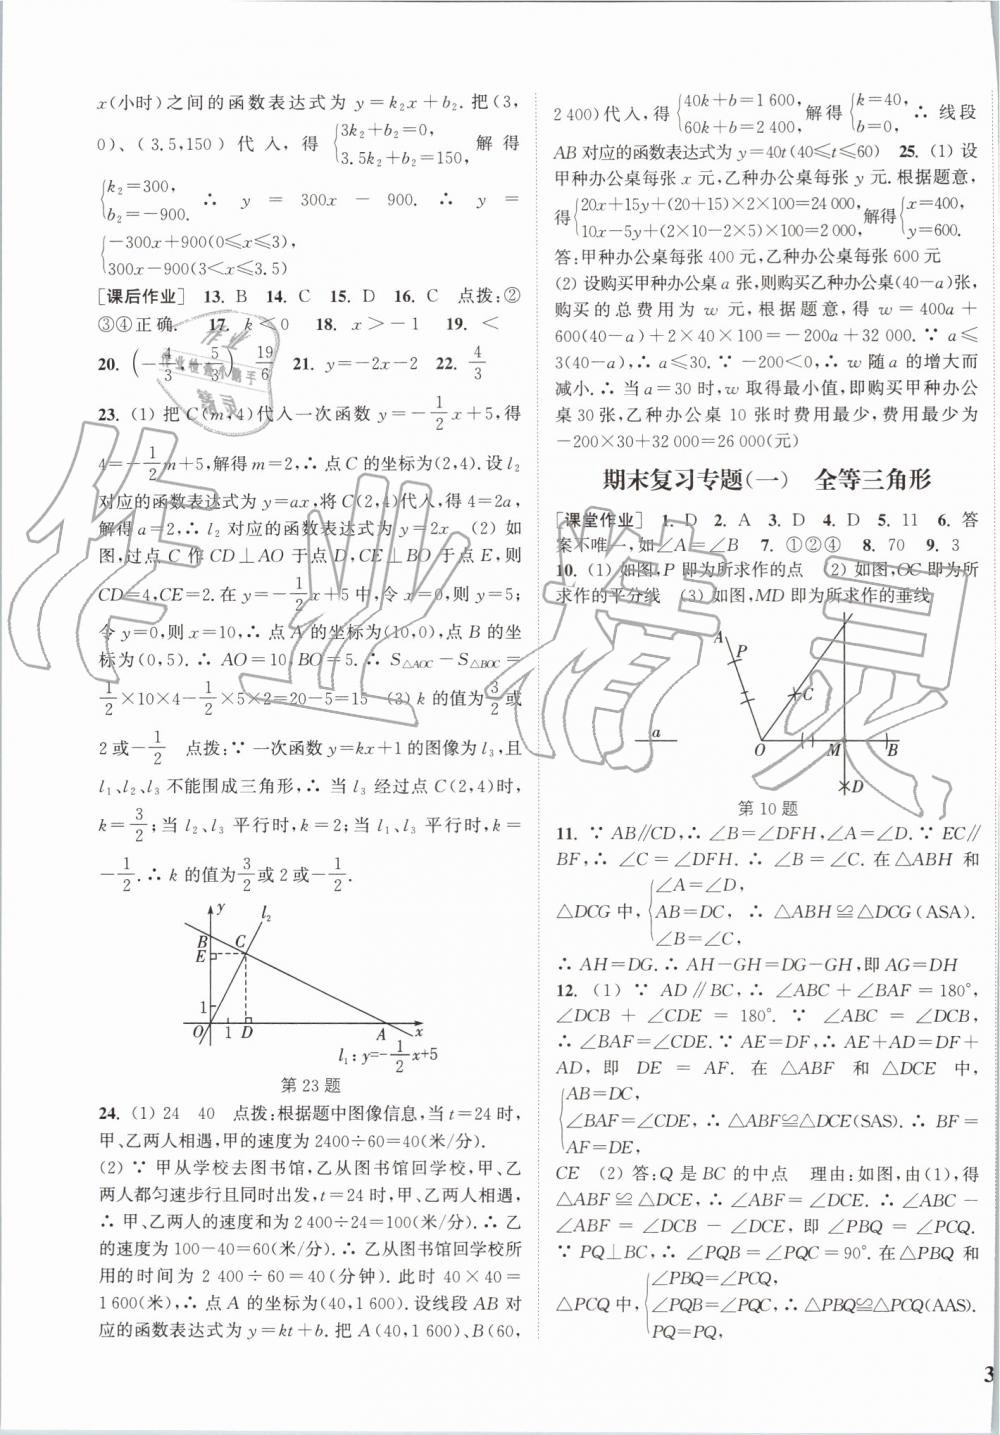 x(小时)之间的函数表达式为 y=k₂x+b₂.把(3,
0)、(3.5,150)代入,得 {3k₂+b₂=0, 3.5k₂+b₂=150, 解得
{k₂=300, b₂=-900. ∴ y = 300x - 900. ∴ y =
{-300x+900(0≤x≤3), 300x-900(3<x≤3.5)
[课后作业] 13. B 14. C 15. D 16. C 点拨:②
③④正确. 17. k<0 18. x>-1 19. <
20. (-4/3, 5/3) 19/6 21. y=-2x-2 22. 4/3
23. (1) 把 C(m,4)代入一次函数 y=-1/2x+5,得
4=-1/2m+5,解得 m=2,∴ 点 C 的坐标为(2,4).设 l₂
对应的函数表达式为 y=ax,将 C(2,4)代入,得 4=2a,
解得 a=2,∴ l₂ 对应的函数表达式为 y=2x (2) 如
图,过点 C 作 CD⊥AO 于点 D,CE⊥BO 于点 E,则
CD=4,CE=2.在 y=-1/2x+5 中,令 x=0,则 y=5;
令 y=0,则 x=10,∴ 点 A 的坐标为(10,0),点 B 的坐
标为(0,5).∴ AO=10,BO=5.∴ S△AOC-S△BOC=
1/2×10×4-1/2×5×2=20-5=15 (3) k 的值为3/2或
2或-1/2 点拨:∵ 一次函数 y=kx+1 的图像为 l₃,且
l₁、l₂、l₃ 不能围成三角形,∴ 当 l₃ 经过点 C(2,4)时,
k=3/2;当 l₂、l₃ 平行时,k=2;当 l₁、l₃ 平行时,k=
-1/2.∴ k 的值为3/2或2或-1/2.
y l₂
B C
E
1
O 1 D A x
l₁:y=-1/2x+5
第 23 题
24. (1) 24 40 点拨:根据题中图像信息,当 t=24 时,
甲、乙两人相遇,甲的速度为 2400÷60=40(米/分).
(2) ∵ 甲从学校去图书馆,乙从图书馆回学校,甲、乙
两人都匀速步行且同时出发,t=24 时,甲、乙两人相遇,
∴ 甲、乙两人的速度和为 2 400÷24=100(米/分).∴ 乙
的速度为 100-40=60(米/分).∴ 乙从图书馆回学校所
用的时间为 2 400÷60=40(分钟).此时 40×40=
1 600(米),∴ 点 A 的坐标为(40,1 600).设线段 AB 对
应的函数表达式为 y=kt+b.把 A(40,1 600)、B(60,
2 400)代入,得 {40k+b=1 600, 60k+b=2 400, 解得 {k=40, b=0, ∴ 线段
AB 对应的函数表达式为 y=40t(40≤t≤60) 25. (1) 设
甲种办公桌每张 x 元,乙种办公桌每张 y 元.根据题意,
得 {20x+15y+(20+15)×2×100=24 000, 10x-5y+(2×10-2×5)×100=2 000, 解得 {x=400, y=600.
答:甲种办公桌每张 400 元,乙种办公桌每张 600 元
(2) 设购买甲种办公桌 a 张,则购买乙种办公桌(40-a)张,
购买的总费用为 w 元,根据题意,得 w = 400a +
600(40-a)+2×40×100=-200a+32 000. ∵ a≤
3(40-a),∴ a≤30.∵ -200<0,∴ w 随 a 的增大而
减小.∴ 当 a=30 时,w 取得最小值,即购买甲种办公
桌 30 张,乙种办公桌 10 张时费用最少,费用最少为
-200×30+32 000=26 000(元)
期末复习专题(一) 全等三角形
[课堂作业] 1. D 2. A 3. D 4. D 5. 11 6. 答
案不唯一,如∠A=∠B 7. ①②④ 8. 70 9. 3
10. (1) 如图,P 即为所求作的点 (2) 如图,OC 即为所
求作的平分线 (3) 如图,MD 即为所求作的垂线
A P
C
a O M B
D
第 10 题
11. ∵ AB∥CD,∴ ∠B=∠DFH,∠A=∠D.∵ EC∥
BF,∴ ∠C=∠DFH.∴ ∠B=∠C.在△ABH 和
△DCG 中, {∠A=∠D, AB=DC, ∠B=∠C, ∴ △ABH≌△DCG(ASA).
∴ AH=DG.∴ AH-GH=DG-GH,即 AG=DH
12. (1) ∵ AD∥BC,∴ ∠ABC+∠BAF=180°,
∠DCB + ∠CDE = 180°. ∵ ∠ABC = ∠DCB,
∴ ∠BAF=∠CDE.∵ AE=DF,∴ AE+AD=DF+
AD,即 DE = AF. 在 △ABF 和 △DCE 中,
{AB=DC, ∠BAF=∠CDE, AF=DE, ∴ △ABF≌△DCE(SAS).∴ BF=
CE (2) 答:Q 是 BC 的中点 理由:如图,由(1),得
△ABF≌△DCE,∴ ∠ABF=∠DCE.∴ ∠ABC-
∠ABF = ∠DCB - ∠DCE,即 ∠PBQ = ∠PCQ.
∵ PQ⊥BC,∴ ∠PQB=∠PQC=90°.在△PBQ 和
△PCQ 中, {∠PBQ=∠PCQ, ∠PQB=∠PQC, PQ=PQ, ∴ △PBQ≌△PCQ(AAS).
3
作业精灵
作业
作业检查小能手
精灵